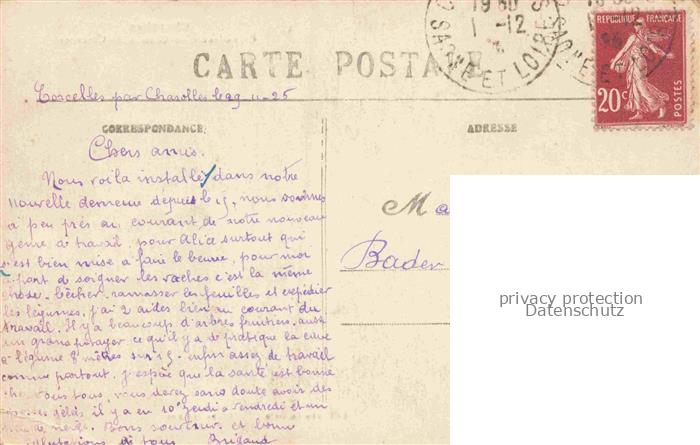 CARTE POSTALE
19 30
1 -12
SAÔNE ET LOIRE
REPUBLIQUE FRANÇAISE
20c
POSTES
Corcelles par Charolles le 29-11-25
CORRESPONDANCE
ADRESSE
Chers amis.
Nous voila installés dans notre
nouvelle demeure depuis le 15, nous sommes
a peu près au courant de notre nouveau
genre de travail, pour Alice surtout qui
s'est bien mise a faire le beurre, pour moi
a part de soigner les vaches c'est la même
chose. bêcher, ramasser les feuilles et expédier
les légumes, j'ai 2 aides bien au courant du
travail. Il y a beaucoup d'arbres fruitiers, aussi
un grand potager, ce qu'il y a de pratique la cave
a légume 8 mètres sur 15. enfin assez de travail
comme partout. J'espère que la santé est bonne
chez vous tous, vous devez sans doute avoir des
gelés, il y a eu 10° jeudi & vendredi et un
de neige. Bons souvenirs et bonne
salutations de tous Brigand
Ma
Bader
privacy protection
Datenschutz